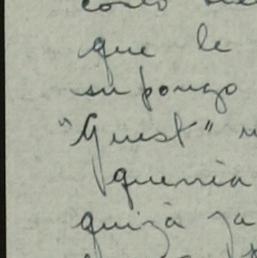 que le
supongo
"Guest"
querría
quizá ya